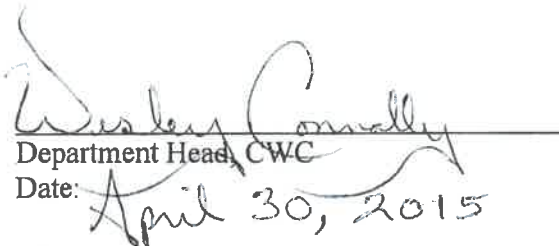 Wesley Connally
Department Head, CWC
Date: April 30, 2015